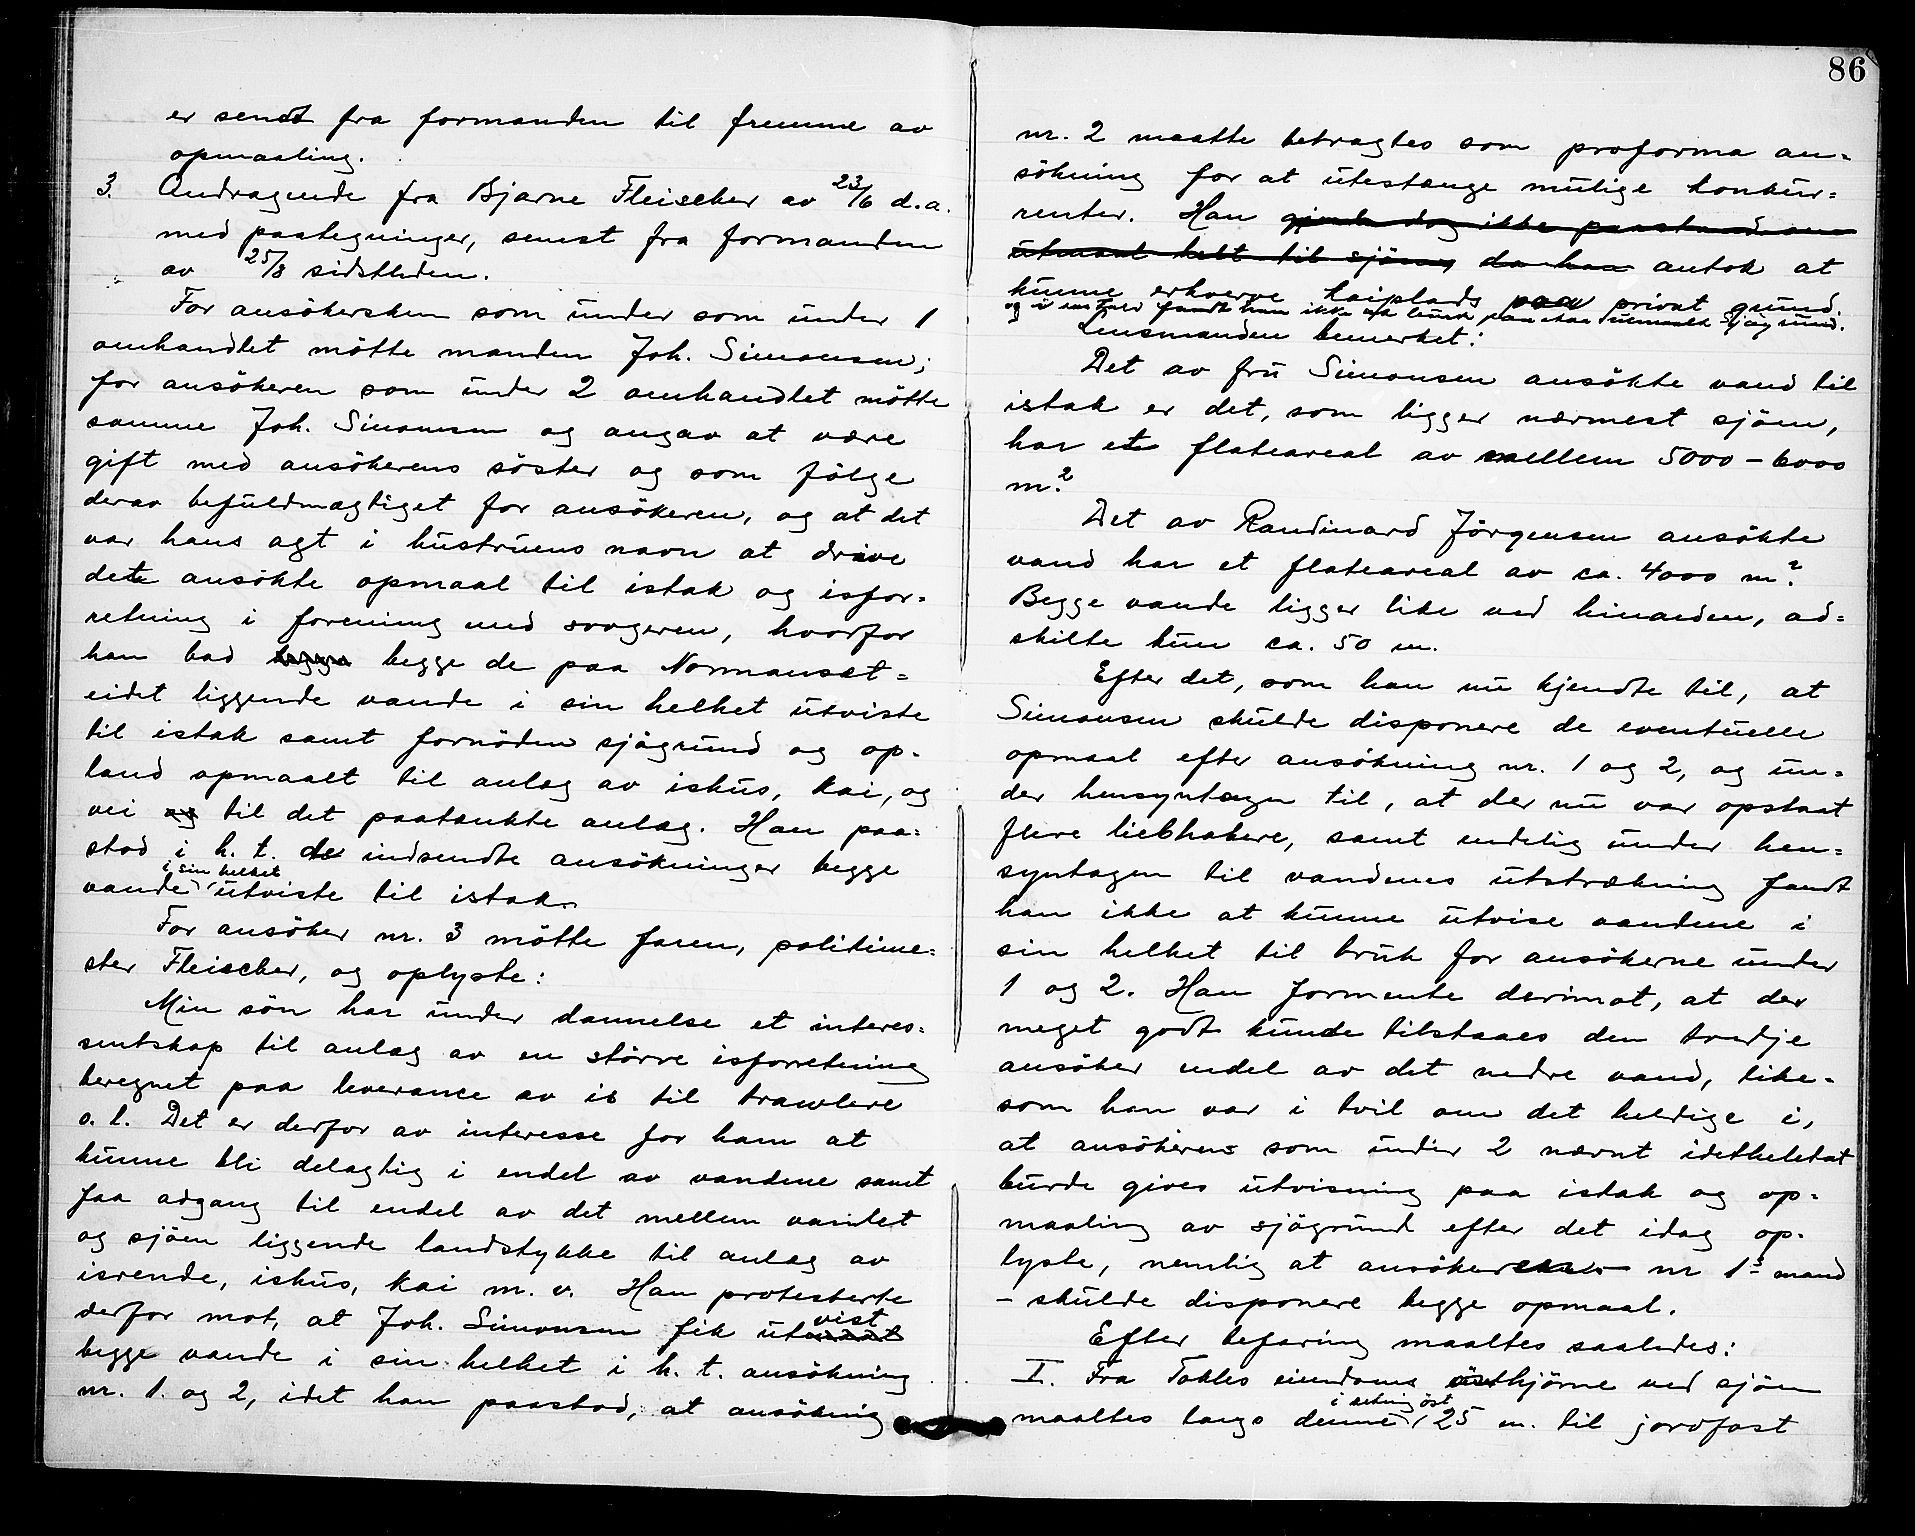 er sendt fra formanden til fremme av
opmaaling.
3. Andragende fra Bjarne Fleischer av 23/6 d.a.
med paategninger, senest fra formanden
av 25/8 sidstleden.
For ansökersken som under som under 1
omhandlet mötte manden Joh. Simonsen;
for ansökeren som under 2 omhandlet mötte
samme Joh. Simonsen og angav at være
gift med ansökerens söster og som fölge
derav befuldmægtiget for ansökeren, og at det
var hans agt i hustruens navn at drive
dete ansökte opmaal til istak og isfor=
retning i forening med svogeren, hvorfor
han bad begge begge de paa Normanset=
eidet liggende vande i sin helhet utviste
til istak samt fornöden sjögrund og op=
land opmaalt til anlæg av ishus, kai, og
vei og til det paatænkte anlæg. Han paa=
stod i h. t. de indsendte ansökninger begge
i sin helhet
vande utviste til istak.
For ansöker nr. 3 mötte faren, politime=
ster Fleischer, og oplyste:
Min sön har under dannelse et interes=
sentskap til anlæg av en större isforretning
beregnet paa leverance av is til trawlere
o. l. Det er derfor av interesse for ham at
kunne bli delagtig i endel av vandene samt
faa adgang til endel av det mellem vandet
og sjöen liggende landstykke til anlæg av
isrende, ishus, kai m. v. Han protesterte
vist
derfor mot, at Joh. Simonsen fik utvirket
begge vande i sin helhet i h. t. ansökning
nr. 1. og 2, idet han paastod, at ansökning
86
nr. 2 maatte betragtes som proforma an=
sökning for at utestænge mulige konkur=
renter. Han gjorde dog ikke paastand om
utmaal helt til sjöen, da han antok at
kunne erhverve kaiplads paa privat grund.
og i ikke
Lensmanden bemerket:
Det av fru Simonsen ansökte vand til
istak er det, som ligger nærmest sjöen,
har et flateareal av mellem 5000 – 6000
m².
Det av Randinard Jörgensen ansökte
vand har et flateareal av ca. 4000 m².
Begge vande ligger like ved hinanden, ad=
skilte kun ca. 50 m.
Efter det, som han nu kjendte til, at
Simonsen skulde disponere de eventuelle
opmaal efter ansökning nr. 1 og 2, og un=
der hensyntagen til, at der nu var opstaat
flere liebhabere, samt endelig under hen=
syntagen til vandenes utstrækning fandt
han ikke at kunne utvise vandene i
sin helhet til bruk for ansökerne under
1 og 2. Han formente derimot, at der
meget godt kunde tilstaaes den tredje
ansöker endel av det nedre vand, like=
som han var i tvil om det heldige i,
at ansökeren som under 2 nævnt idethele tat
burde gives utvisning paa istak og op=
maaling av sjögrund efter det idag op=
lyste, nemlig at ansökerens nr 1s mand
– skulde disponere begge opmaal.
Efter befaring maaltes saaledes:
I. Fra Tokles eiendoms östhjörne ved sjöen
i retning öst
maaltes langs denne 25 m. til jordfast